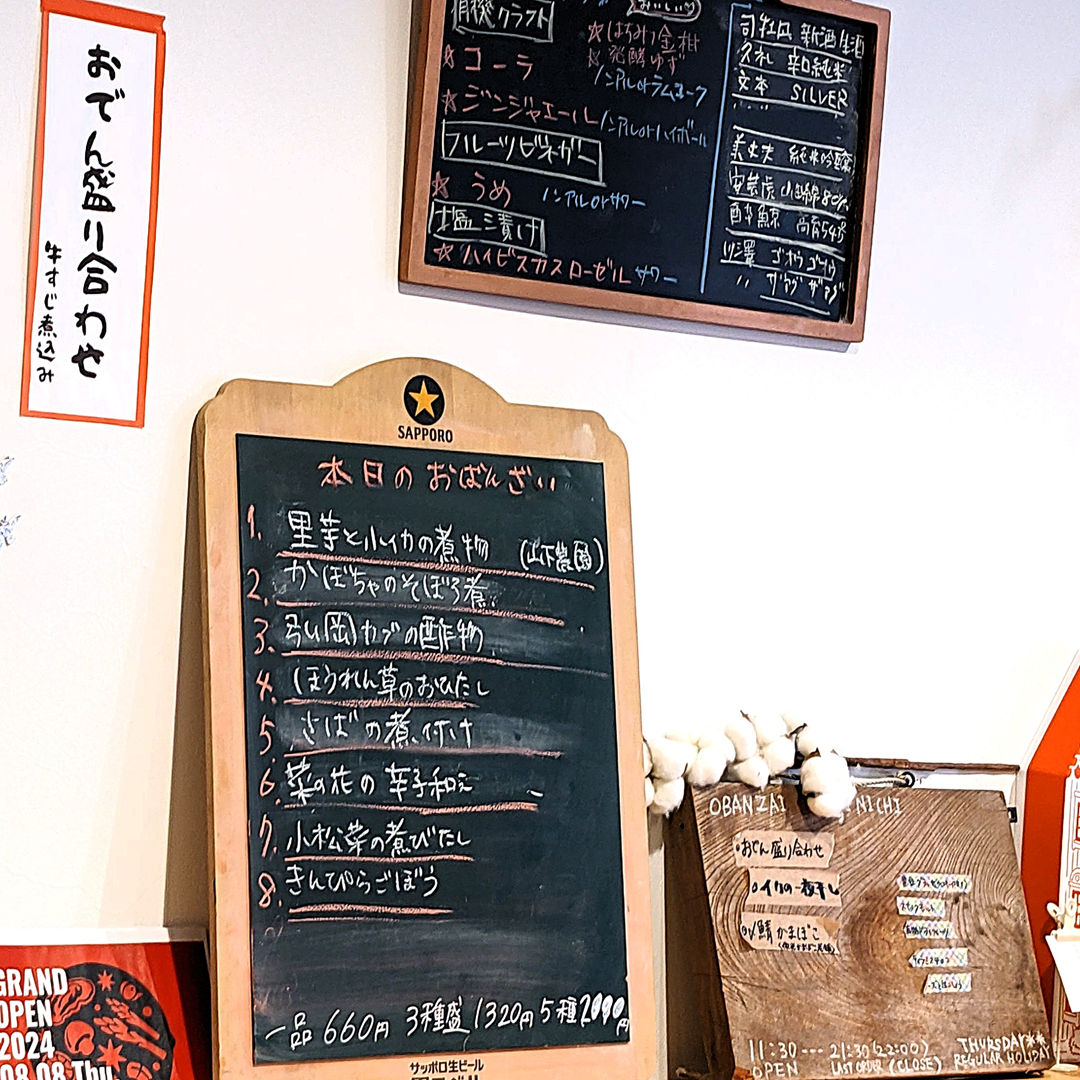 おでん盛り合わせ
牛すじ煮込み
有機クラフト
☆コーラ
☆ジンジャエール
フルーツビネガー
☆うめ
塩漬け
☆ハイビスカスローゼルサワー
おいしい♡
☆はちみつ金柑
☆発酵ゆず
ノンアルorラムコーク
ノンアルorハイボール
ノンアルorサワー
司牡丹 新酒生酒
久礼 辛口純米
文本 SILVER
美丈夫 純米吟醸
安芸虎
酔鯨 高育54号
川澤
SAPPORO
本日のおばんざい
1. 里芋と小イカの煮物 (山下農園)
2. かぼちゃのそぼろ煮
3. 弘岡カブの酢物
4. ほうれん草のおひたし
5. さばの煮付け
6. 菜の花の辛子和え
7. 小松菜の煮びたし
8. きんぴらごぼう
一品 660円 3種盛 1320円 5種2000円
サッポロ生ビール
GRAND
OPEN
2024
08.08 Thu
OBANZAI NICHI
おでん盛り合わせ
イカの一夜干し
鯖かまぼこ
11:30 --- 21:30 (22:00)
OPEN LAST ORDER (CLOSE)
THURSDAY**
REGULAR HOLIDAY